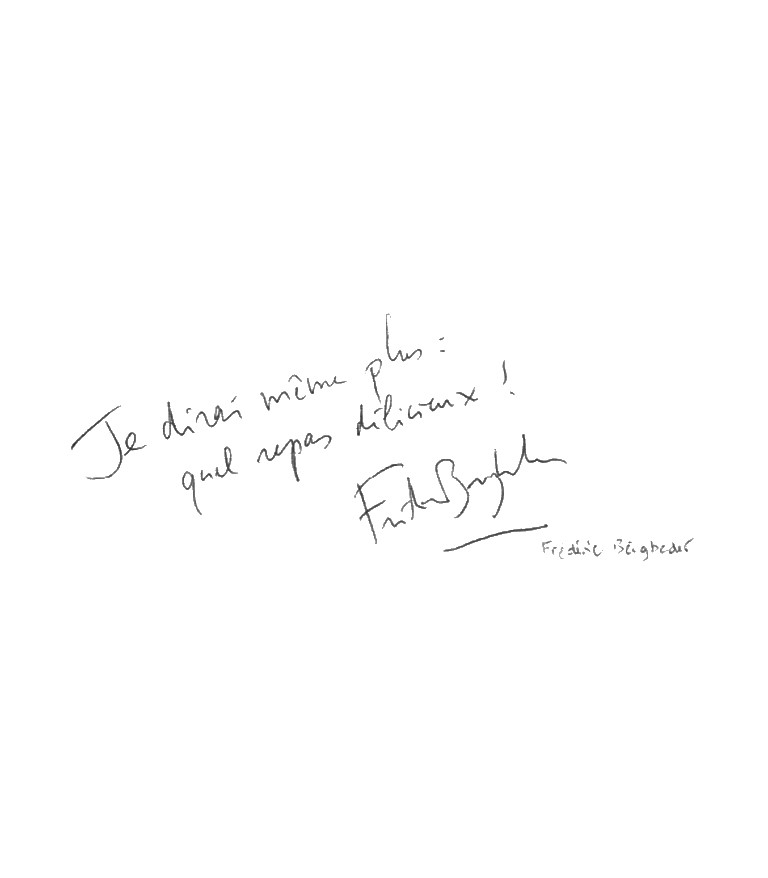 Je dirai même plus :
quel repas délicieux !
Frédéric Beigbeder